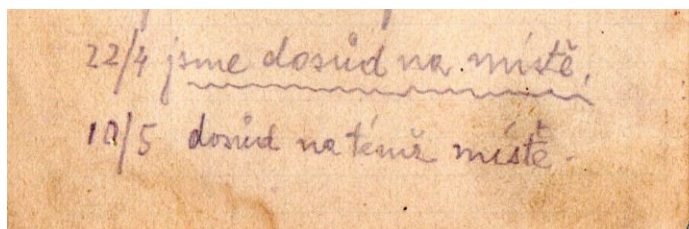 22/4 jsme dosůd na místě.
10/5 dosůd na témž místě.